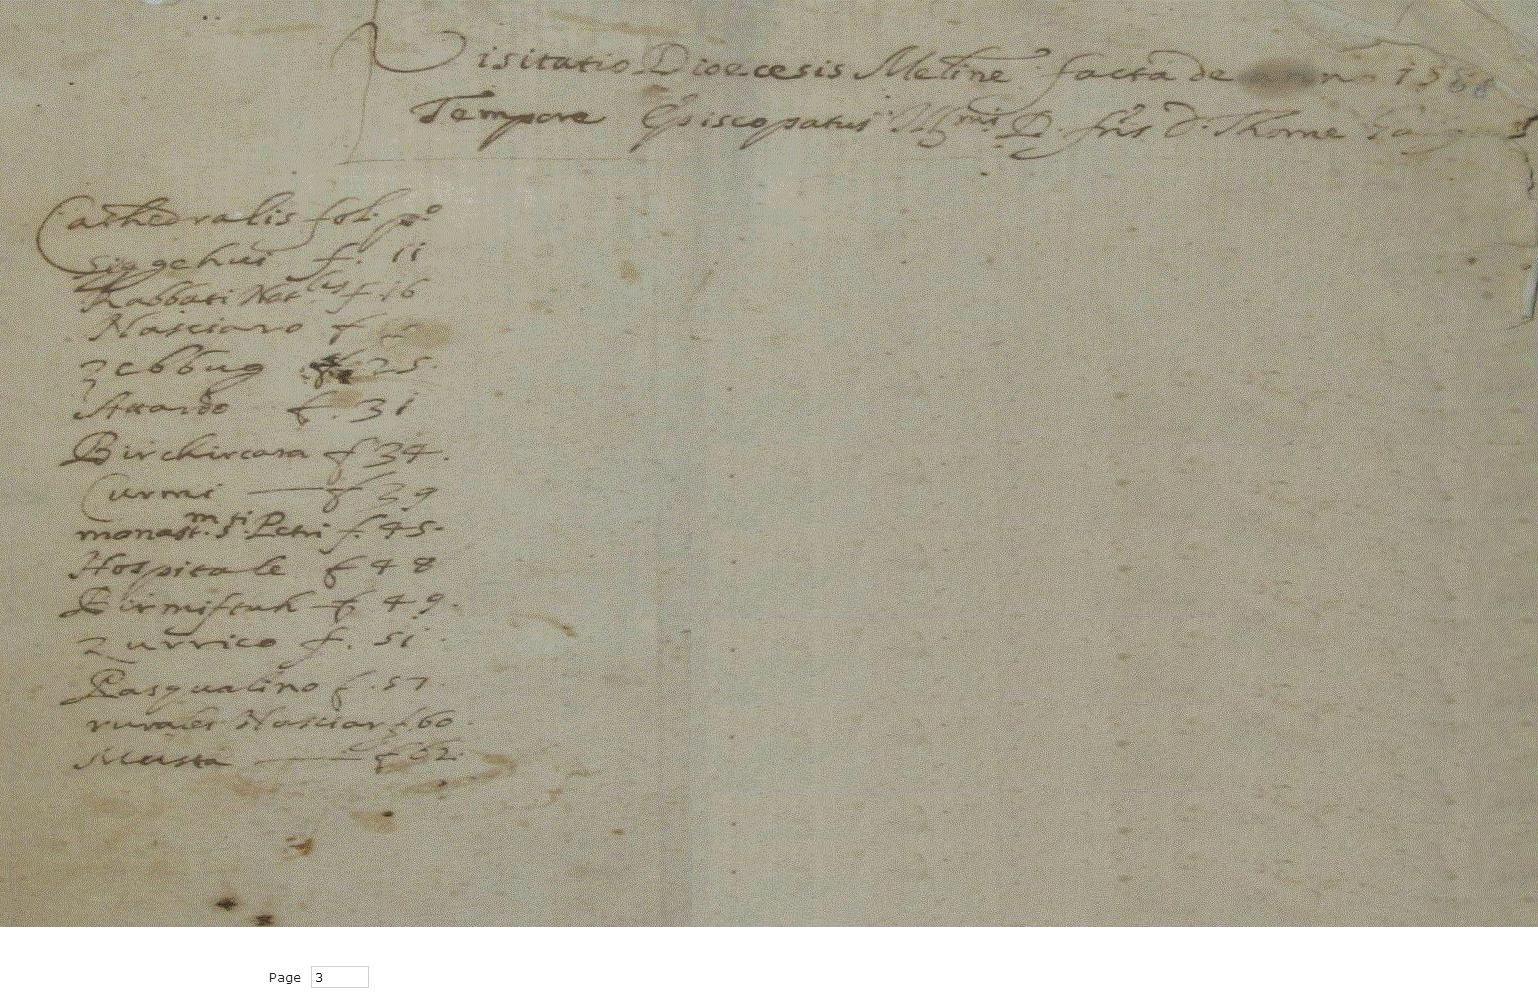 Visitatio Dioecesis Meline facta de anno 1588
Tempore Episcopatus Ill.mi D. fris D. Thome
Cathedralis fol. p.o
Siggehui f. 11
Rabbati Not. f 16
Nasciaro f
Zebbug f 25.
Attardo f. 31
Birchircara f 34.
Curmi f 39
monast.m S.ti Petri f. 45
Hospitale f 48
Birmiftuh f 49.
Zurrico f. 51
Pasqualino f. 57.
rurales Nasciar f. 60.
Musta f 62.
Page 3